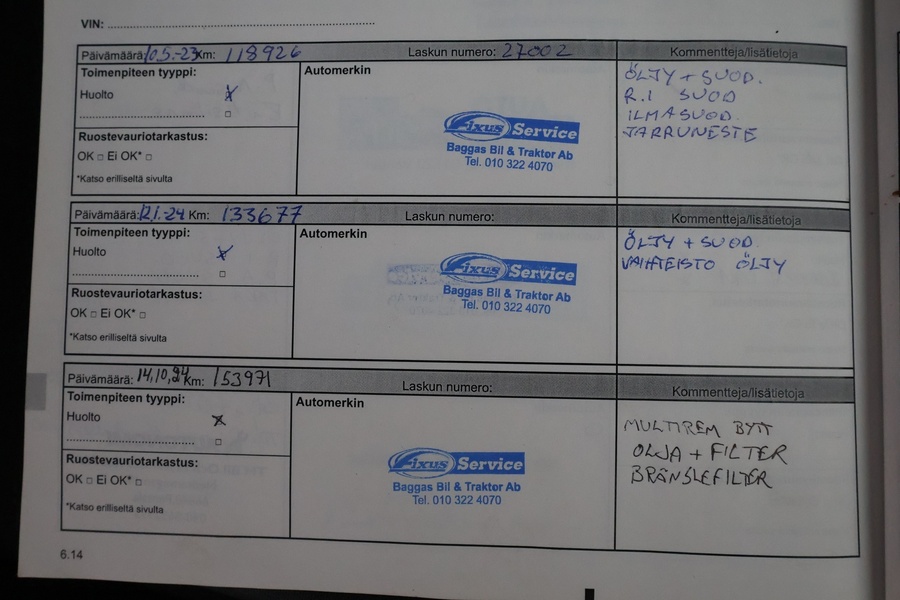 VIN:
Päivämäärä: 10.5.-23 Km: 118926 Laskun numero: 27002 Kommentteja/lisätietoja
Toimenpiteen tyyppi:
Huolto X
Ruostevauriotarkastus:
OK □ Ei OK* □
*Katso erilliseltä sivulta
Automerkin
Fixus Service
Baggas Bil & Traktor Ab
Tel. 010 322 4070
ÖLJY + SUOD.
R.I SUOD
ILMASUOD.
JARRUNESTE
Päivämäärä: 12.1.-24 Km: 133677 Laskun numero: Kommentteja/lisätietoja
Toimenpiteen tyyppi:
Huolto X
Ruostevauriotarkastus:
OK □ Ei OK* □
*Katso erilliseltä sivulta
Automerkin
Fixus Service
Baggas Bil & Traktor Ab
Tel. 010 322 4070
ÖLJY + SUOD
VAIHTEISTO ÖLJY
Päivämäärä: 14,10,24 Km: 153971 Laskun numero: Kommentteja/lisätietoja
Toimenpiteen tyyppi:
Huolto X
Ruostevauriotarkastus:
OK □ Ei OK* □
*Katso erilliseltä sivulta
Automerkin
Fixus Service
Baggas Bil & Traktor Ab
Tel. 010 322 4070
MULTIREM BYTT
OLJA + FILTER
BRÄNSLEFILTER
6.14